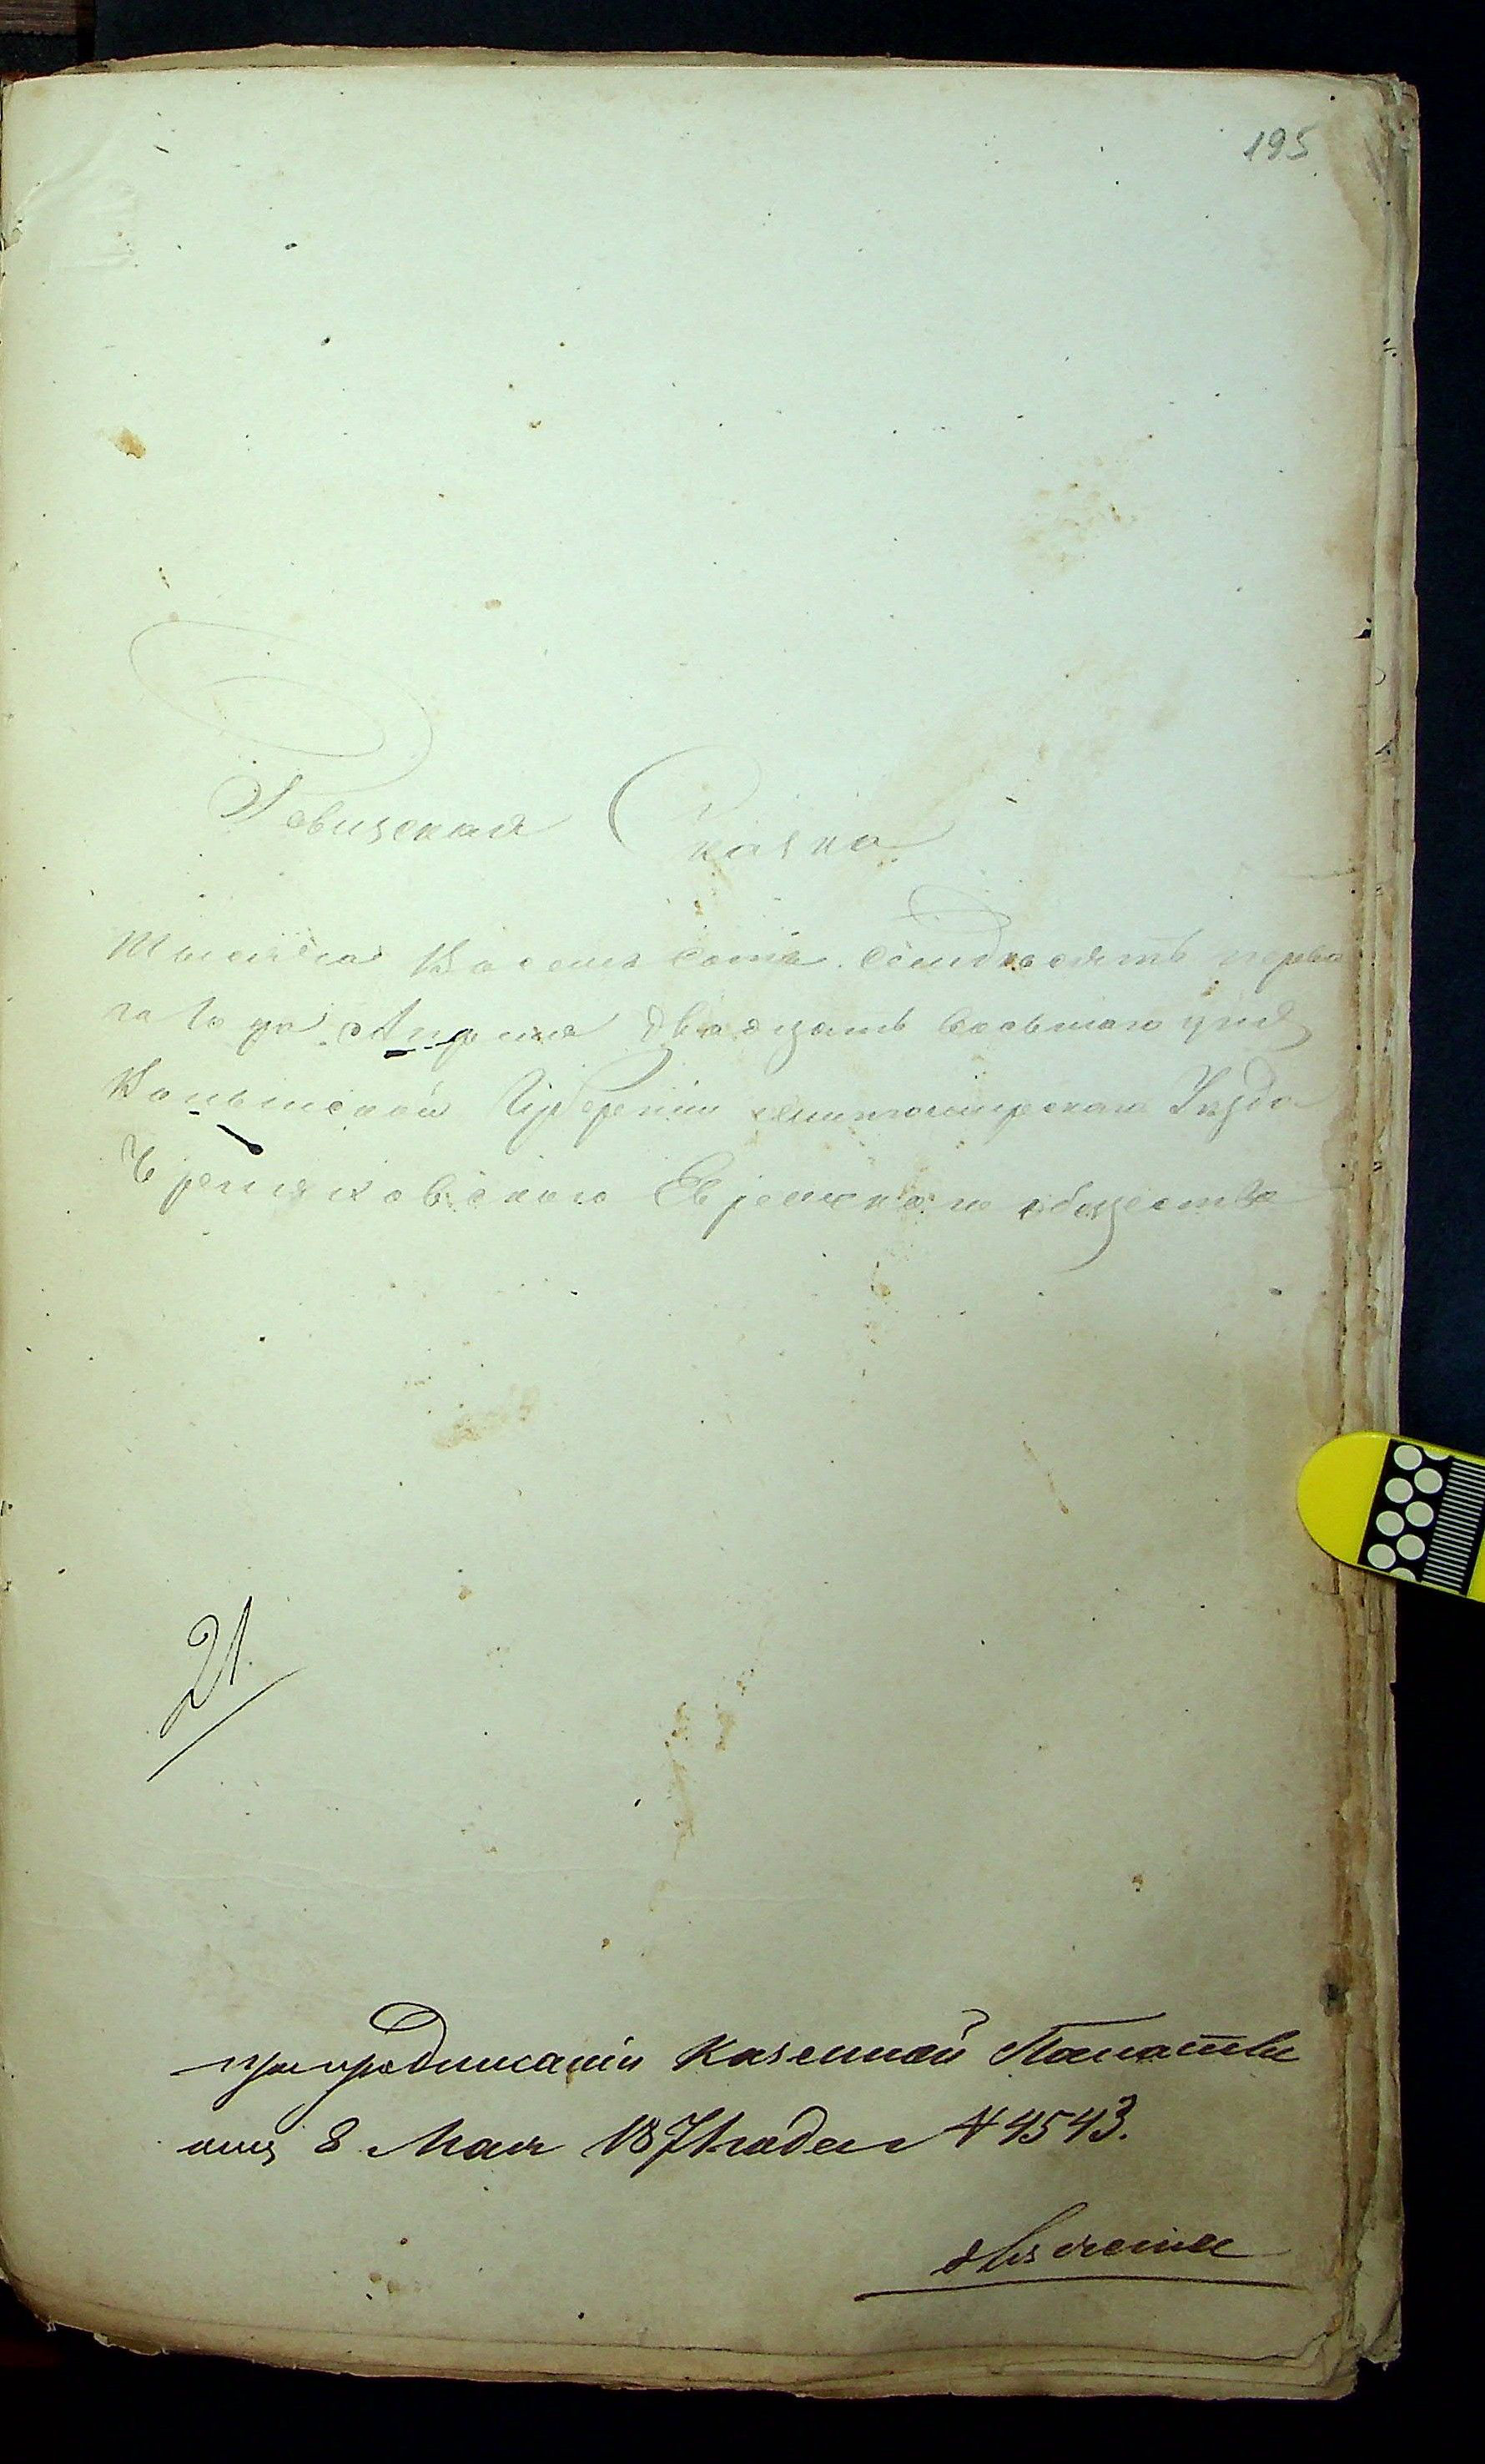 195
Ревизская Сказка
тысяча восемь сотъ семдесятъ перва
го года Апреля двадцать восьмого дня
Волынской Губернии Житомирского Уезда
Черняховского Еврейского общества
21.
при предписании Казенной Палаты
отъ 8 Мая 1871 года N 4543.